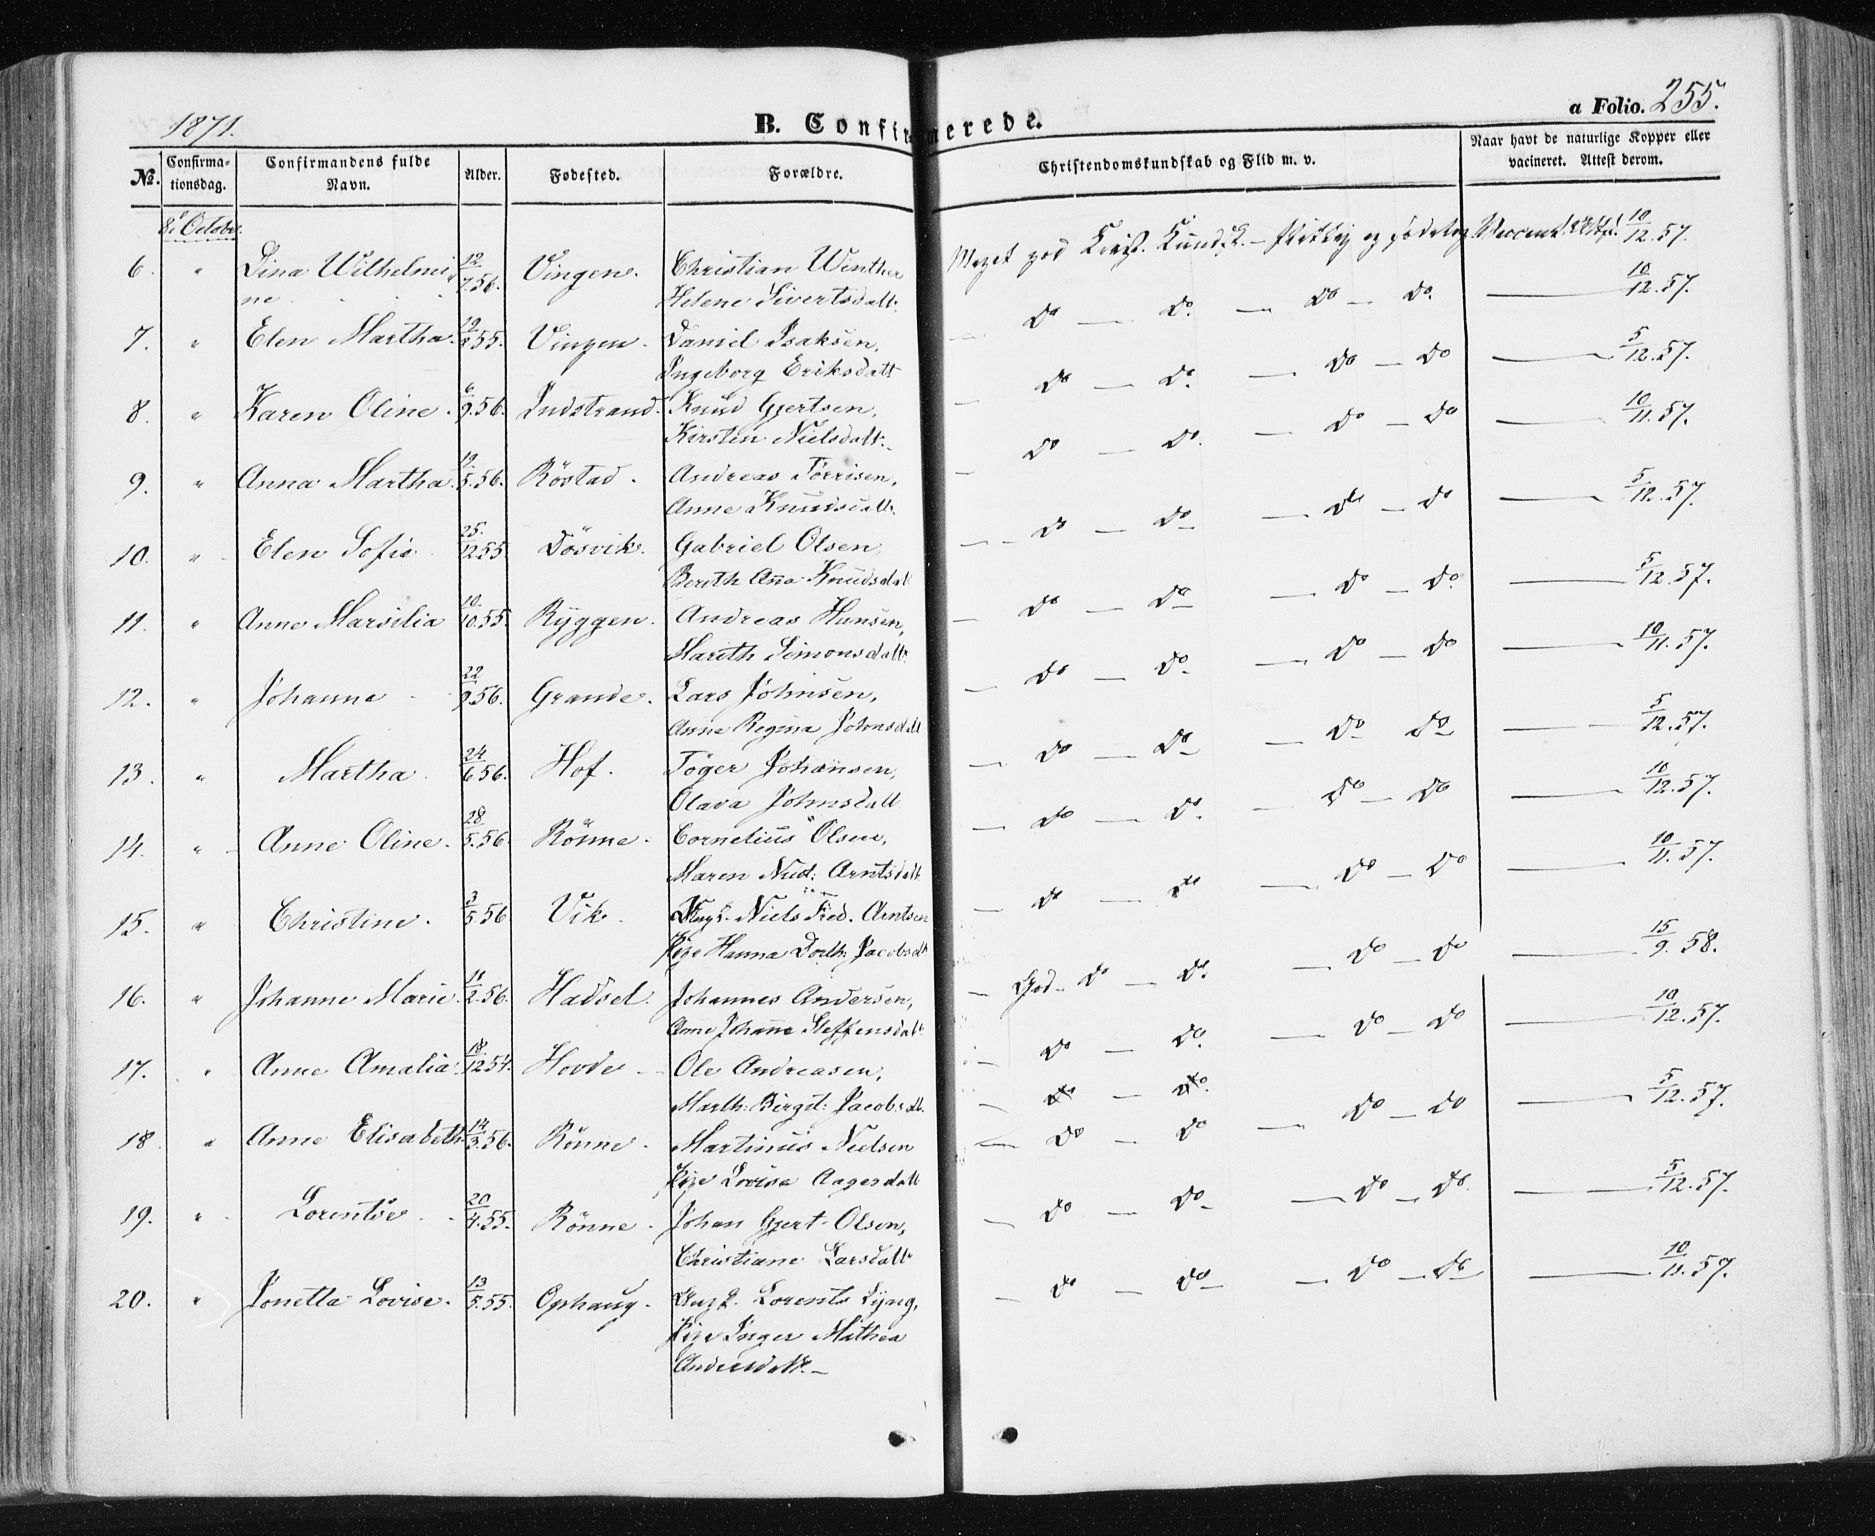 1871.
B. Confirmerede.
a Folio. 255.
№. Confirmationsdag. Confirmandens fulde Navn. Alder. Fødested. Forældre. Christendomskundskab og Flid m. v. Naar havt de naturlige Kopper eller vacineret. Attest derom.
8de October
6. " Dina Wilhelmi 12/7.56. Vingen. Christian Winther Meget god Krist. Kundsk. 10/12.57.
ne Helene Sivertsdatt.
7. " Elen Martha. 55. Vingen. Daniel Isaksen, do — do. — do — do. — 10/12.57.
Ingeborg Eriksdatt
8. " Karen Oline. 6/9.56. Indstrand. Knud Gjertsen, do — do. — do — do — 5/12.57.
Kirsten Nielsdatt.
9. " Anna Martha. 12/5.56. Röstad. Andreas Tørrisen, do — do. — do — do — 10/11.57.
Anne Knudsdatt.
10. " Elen Sofie 25/12 55. Dösvik. Gabriel Olsen, do — do — do — do — 5/12.57.
Berith Ana Knudsdat
11. " Anne Marsilia 10/10.55. Ryggen. Andreas Hansen, do — do — do — do. — 5/12.57.
Marith Simonsdatt.
12. " Johanna 22/9.56. Grande. Lars Johnsen, do — do — do — do — 10/11.57.
Anne Regina Johnsdatt
13. " Martha. 24/6 56. Hof. Töger Johansen, do — do — do do — 5/12.57.
Olava Johnsdatt
14. " Anne Oline. 28/5.56. Rönne. Cornelius Olsen, do — do. — do — do — 10/12.57.
Maren Arntsdatt
15. " Christine. 3/5 56 Vik. Niels Fred. Arntsen do — do — do — do — 10/11.57.
Pige Hanna Dorth. Jacobsdt
16. " Johanne Marie. 11/2.56. Hadsel. Johannes Andersen, God do — do. — do — do 15/9.58.
Anne Johanna Steffensdatt
17. " Anne Amalia. 18/12 54. Hovde Ole Andreasen, do — do. — do — do — 10/12.57.
Marth. Birgit. Jacobsdt. do — do.
18. " Anne Elisabeth 14/3.56. Rönne. Martinus Nielsen do — do — do — do — 5/12.57.
Pige Lovise Aagesdatt
19. " Lorentse 20/4.55. Rönne. Johan Gjert Olsen, do — do — do — do. — 5/12.57.
Christiane Larsdatt
20. " Jonetta Lovise. 13/5.55. Ophaug. Lorents Lyng, do — do — do — do — 10/11.57.
Pige Inger Mathea
Andersdatt. —